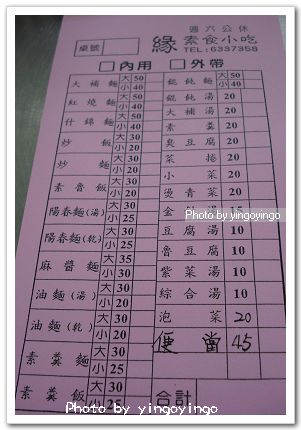 週六公休
緣 素食小吃
桌號
TEL:6337358
□內用 □外帶
大補麵 大50 小40
紅燒麵 大50 小40
什錦麵 大50 小40
炒飯 大50 小40
炒麵 大50 小40
素魯飯 大30 小25
陽春麵(湯) 大30 小25
陽春麵(乾) 大30 小25
麻醬麵 大35 小25
油麵(湯) 大30 小20
油麵(乾) 大30 小20
素羹麵 大30 小25
素羹飯 大30 小25
餛飩麵 大50 小40
餛飩湯 20
大補湯 20
素羹 20
臭豆腐 20
菜捲 20
小菜 20
燙青菜 20
豆腐湯 10
魯豆腐 10
紫菜湯 10
綜合湯 10
泡菜 20
便當 45
合計
Photo by yingoyingo
Photo by yingoyingo